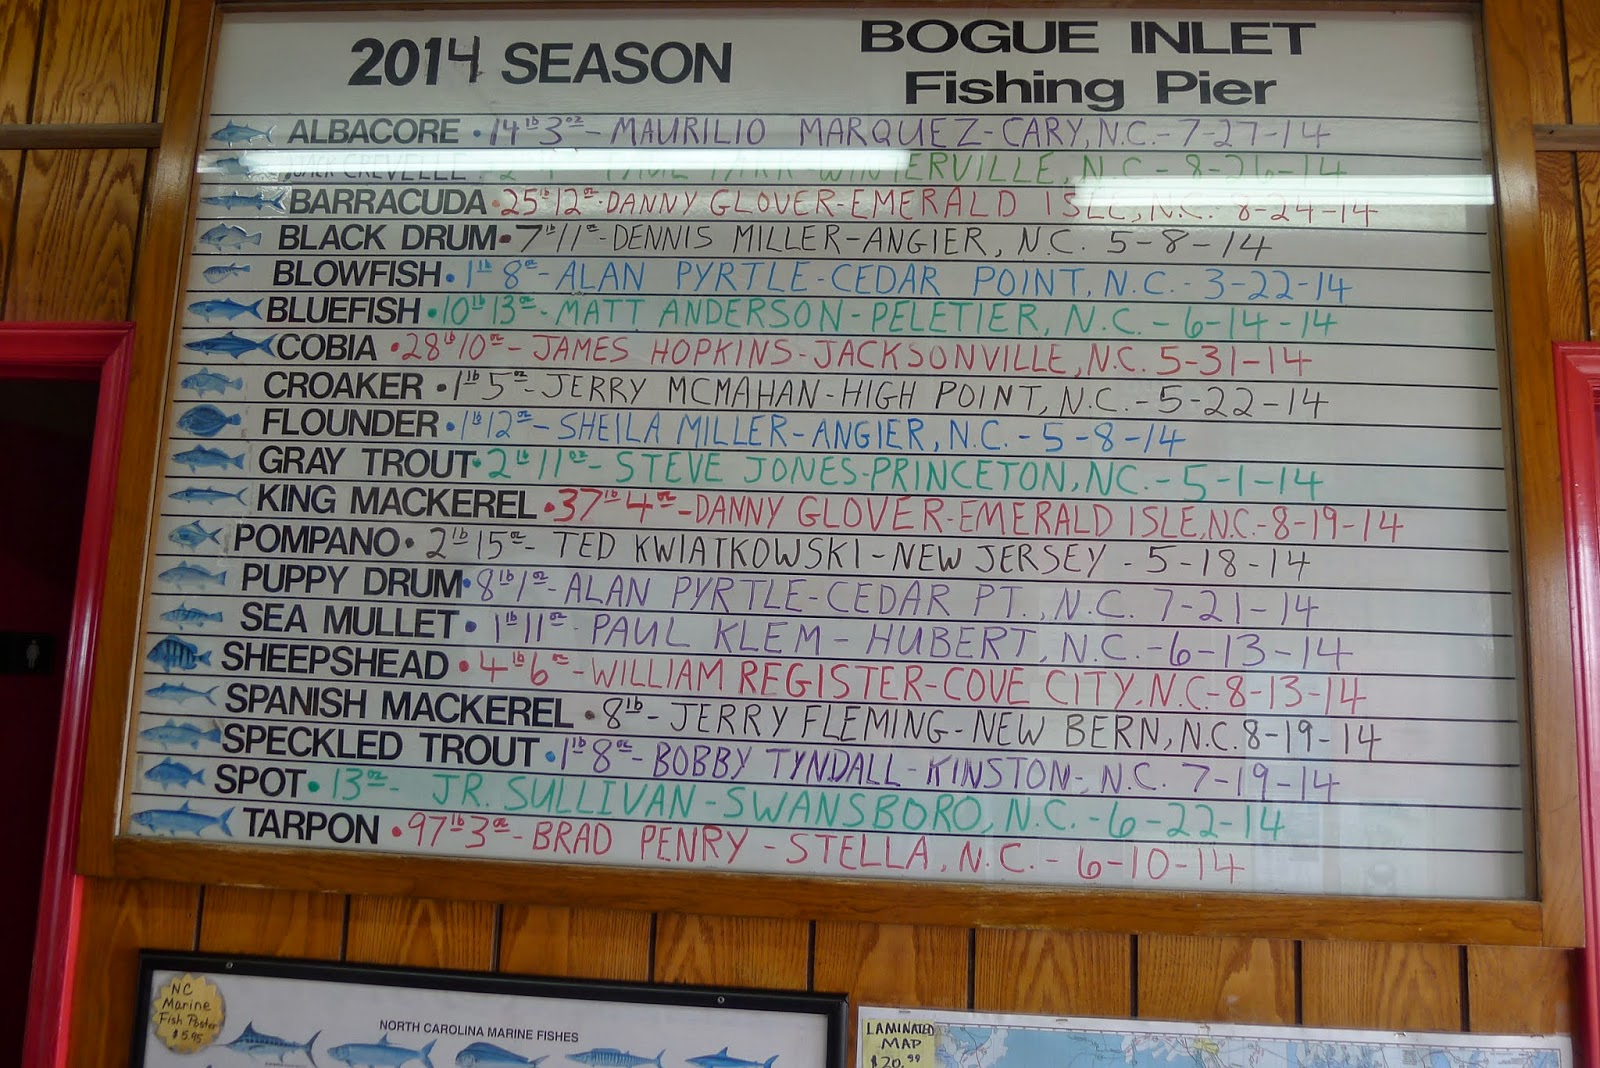 2014 SEASON
BOGUE INLET
Fishing Pier
ALBACORE • 14 lb 3 oz - MAURILIO MARQUEZ - CARY, N.C. - 7-27-14
JACK CREVELLE PAUL WINTERVILLE, N.C. - 8-26-14
BARRACUDA • 25 lb 12 oz - DANNY GLOVER - EMERALD ISLE, N.C. 8-24-14
BLACK DRUM • 7 lb 11 oz - DENNIS MILLER - ANGIER, N.C. 5-8-14
BLOWFISH • 1 lb 8 oz - ALAN PYRTLE - CEDAR POINT, N.C. - 3-22-14
BLUEFISH • 10 lb 13 oz - MATT ANDERSON - PELETIER, N.C. - 6-14-14
COBIA • 28 lb 10 oz - JAMES HOPKINS - JACKSONVILLE, N.C. 5-31-14
CROAKER • 1 lb 5 oz - JERRY MCMAHAN - HIGH POINT, N.C. - 5-22-14
FLOUNDER • 1 lb 12 oz - SHEILA MILLER - ANGIER, N.C. - 5-8-14
GRAY TROUT • 2 lb 11 oz - STEVE JONES - PRINCETON, NC. - 5-1-14
KING MACKEREL • 37 lb 4 oz - DANNY GLOVER - EMERALD ISLE, N.C. - 8-19-14
POMPANO • 2 lb 15 oz - TED KWIATKOWSKI - NEW JERSEY - 5-18-14
PUPPY DRUM • 8 lb 1 oz - ALAN PYRTLE - CEDAR PT., N.C. 7-21-14
SEA MULLET • 1 lb 11 oz - PAUL KLEM - HUBERT, N.C. - 6-13-14
SHEEPSHEAD • 4 lb 6 oz - WILLIAM REGISTER - COVE CITY, N.C. - 8-13-14
SPANISH MACKEREL • 8 lb - JERRY FLEMING - NEW BERN, N.C. 8-19-14
SPECKLED TROUT • 1 lb 8 oz - BOBBY TYNDALL - KINSTON - N.C. 7-19-14
SPOT • 13 oz - JR. SULLIVAN - SWANSBORO, N.C. - 6-22-14
TARPON • 97 lb 3 oz - BRAD PENRY - STELLA, N.C. - 6-10-14
NC
Marine
Fish Poster
$5.95
NORTH CAROLINA MARINE FISHES
LAMINATED
MAP
$20.99